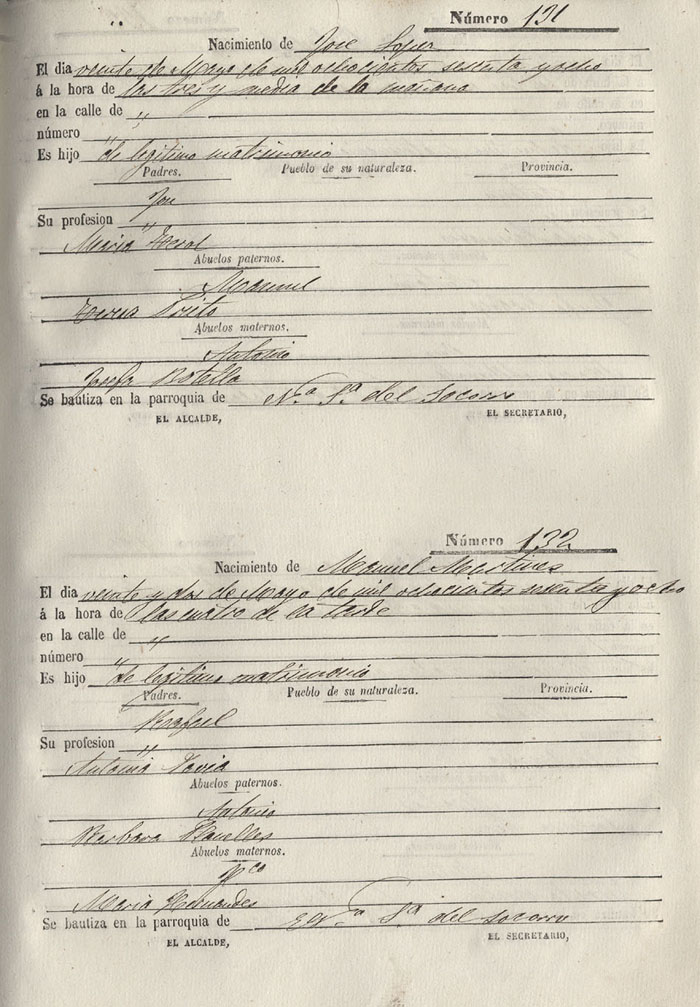 Número 131
Nacimiento de Jose Lopez
El dia veinte de Mayo de mil ochocientos sesenta y ocho
á la hora de las tres y media de la mañana
en la calle de "
número "
Es hijo de legitimo matrimonio
Padres. Pueblo de su naturaleza. Provincia.
Jose
Su profesion "
Maria
Abuelos paternos.
Manuel
Teresa
Abuelos maternos.
Antonio
Josefa Botella
Se bautiza en la parroquia de N.a S.a del Socorro
EL ALCALDE, EL SECRETARIO,
Número 132
Nacimiento de Manuel Martinez
El dia veinte y dos de Mayo de mil ochocientos sesenta y ocho
á la hora de las cuatro de la tarde
en la calle de "
número "
Es hijo de legitimo matrimonio
Padres. Pueblo de su naturaleza. Provincia.
Rafael
Su profesion "
Antonia
Abuelos paternos.
Antonio
Barbara Planelles
Abuelos maternos.
Fco
Maria Hernandes
Se bautiza en la parroquia de N.a S.a del Socorro
EL ALCALDE, EL SECRETARIO,